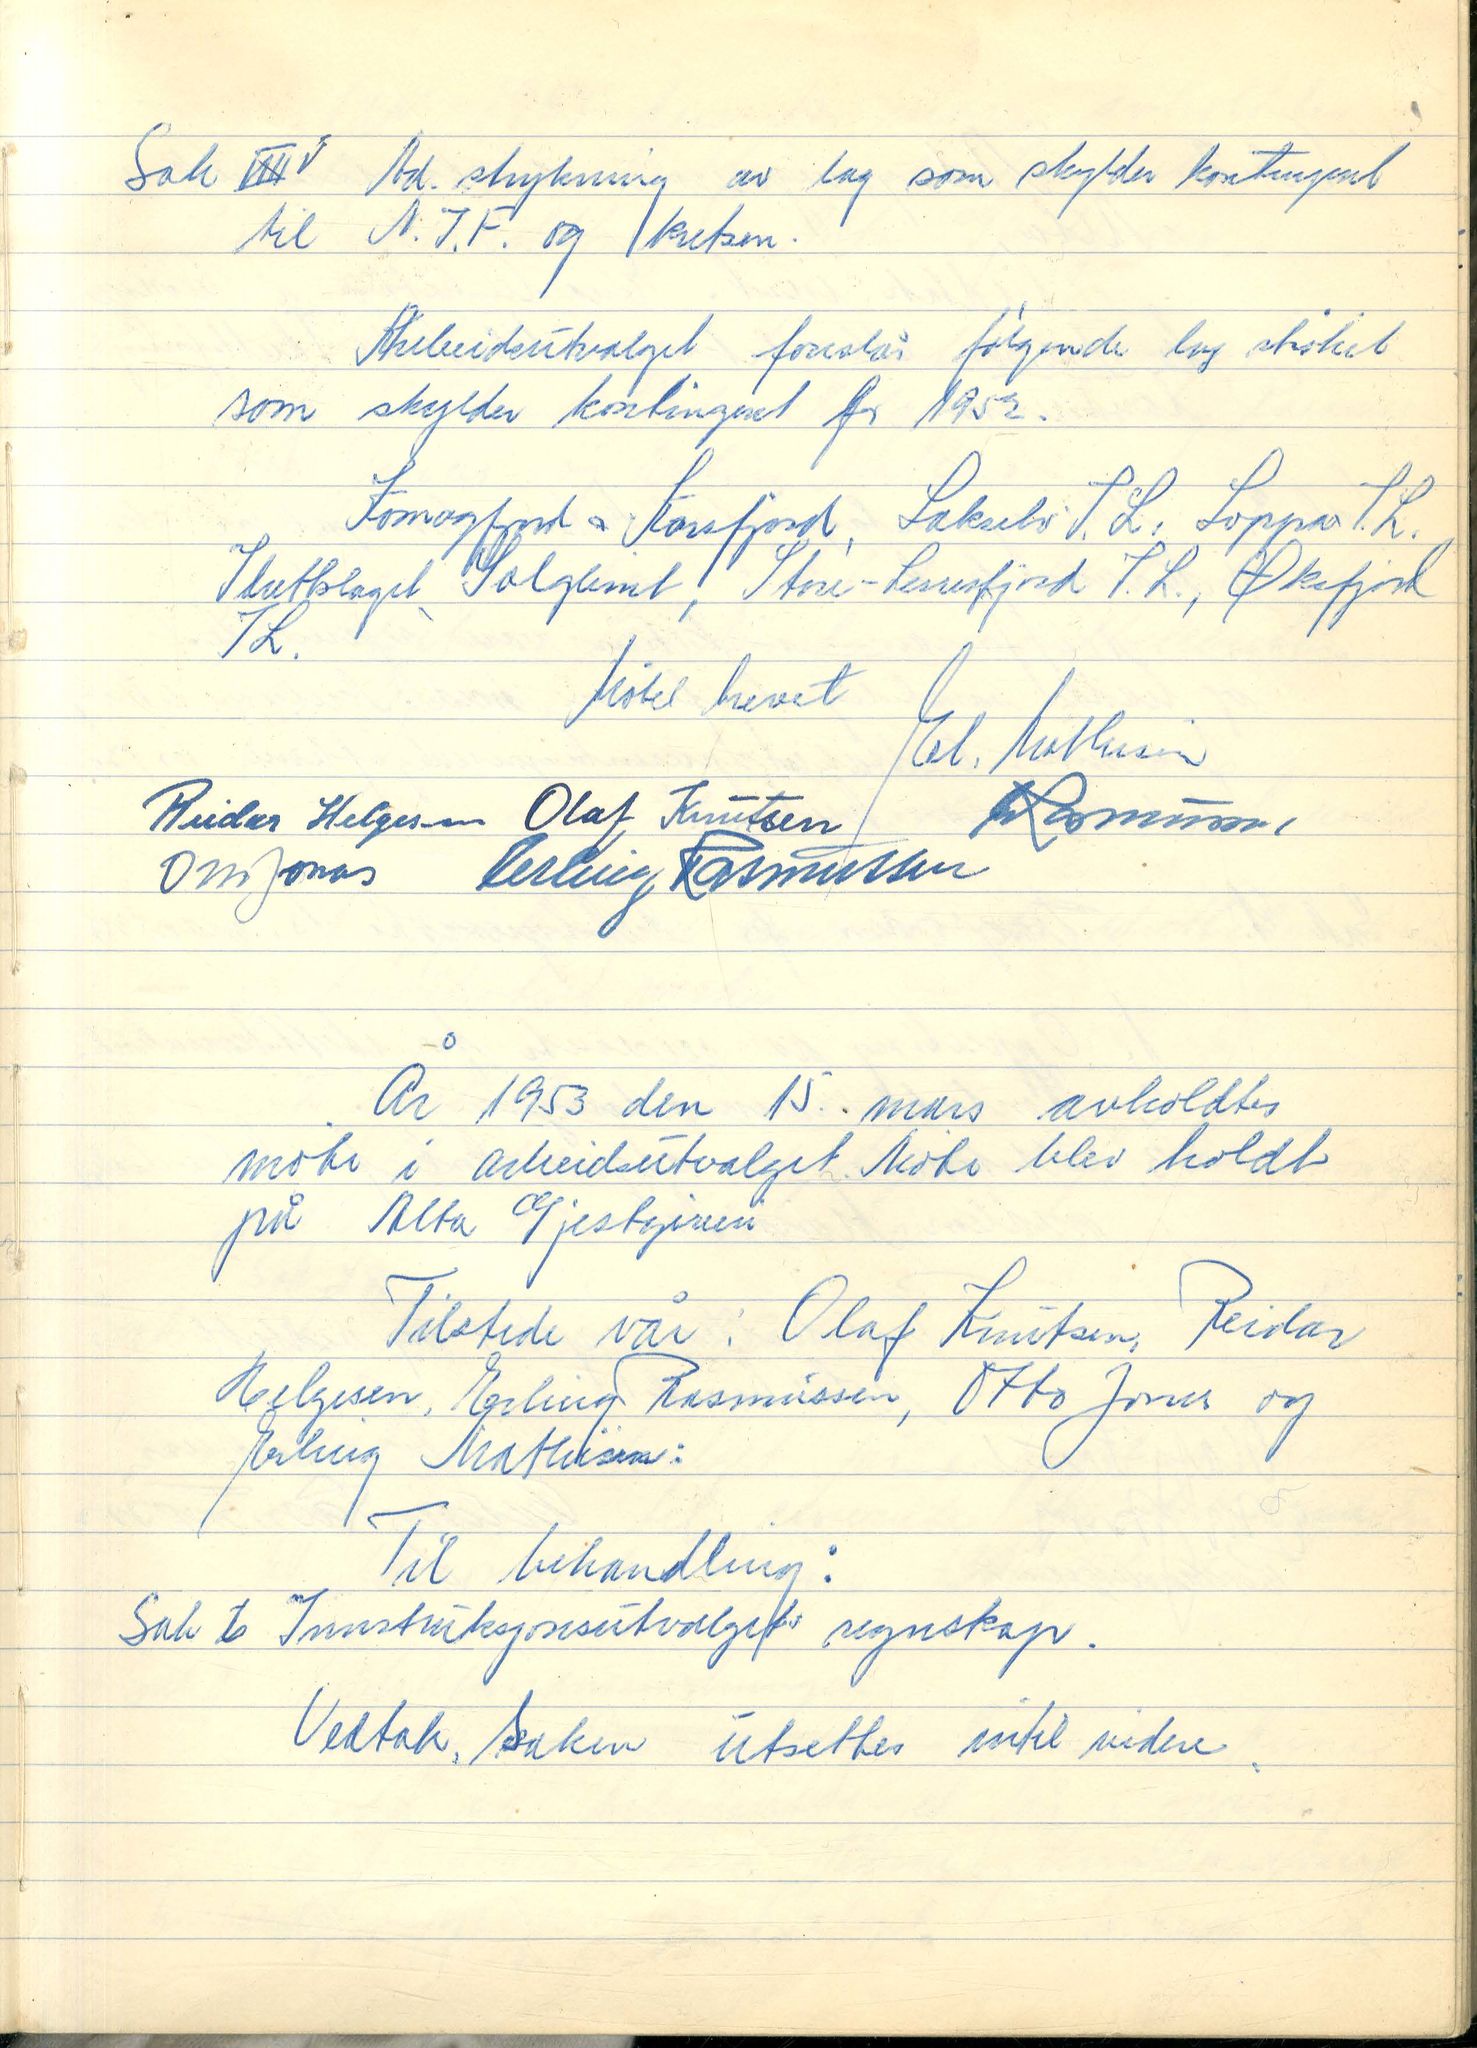 Sak V Ad. strykning av lag som skylder kontingent
til N.I.F. og kretsen.
Arbeidsutvalget foreslås følgende lag strøket
som skylder kontingent for 1952.
Komagfjord & Korsfjord, Lakselv I.L., Loppa I.L.
Idrettslaget Solglimt, Store-Lerresfjord I.L., Øksfjord
I.L.
Møtet hevet
Erl. Mathisen
Reidar Helgesen Olaf Knutsen Rasmussen
Otto Jonas Erling Rasmussen
År 1953 den 15. mars avholdtes
møte i arbeidsutvalget. Møte blev holdt
på Alta Gjestgiveri
Tilstede var: Olaf Knutsen, Reidar
Helgesen, Erling Rasmussen, Otto Jonas og
Erling Mathisen:
Til behandling:
Sak Innstruksjonsutvalgets regnskap.
Vedtak. Saken utsettes intil videre.